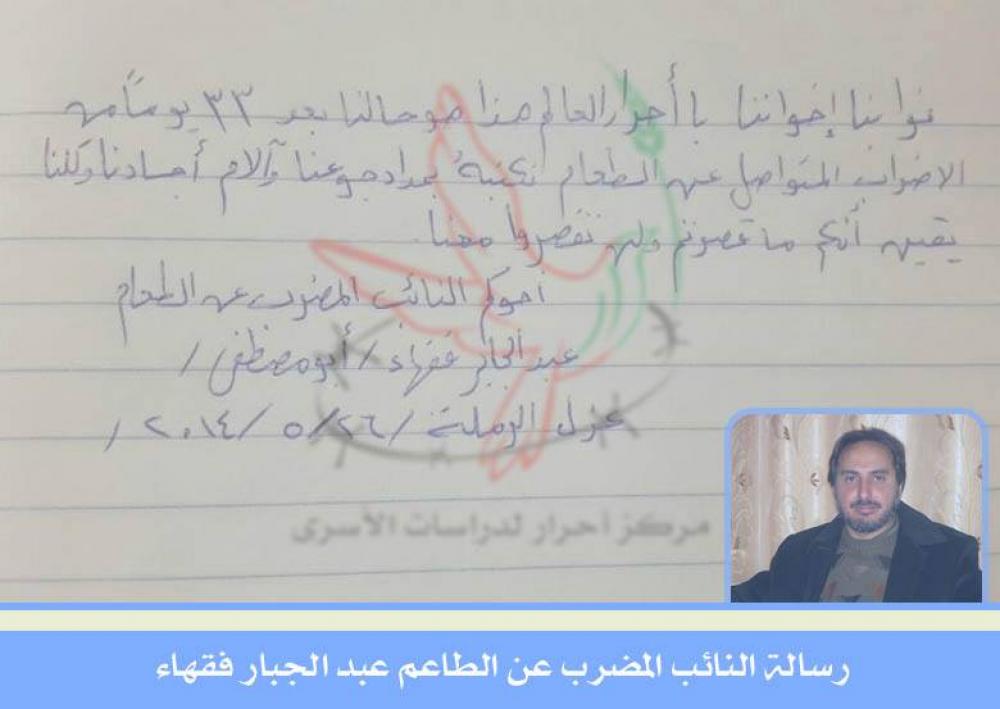 نوابنا إخواننا يا أحرار العالم هذا هو حالنا بعد ٣٣ يوماً من
الاضراب المتواصل عن الطعام نكتبهُ بمداد جوعنا وآلام أجسادنا وكلنا
يقين أنكم ما قصرتم ولن تقصروا معنا.
أخوكم النائب المضرب عن الطعام
عبد الجبار فقهاء / أبو مصطفى /
عزل الرملة / ٢٦ / ٥ / ٢٠١٤ /
مركز أحرار لدراسات الأسرى
رسالة النائب المضرب عن الطاعم عبد الجبار فقهاء